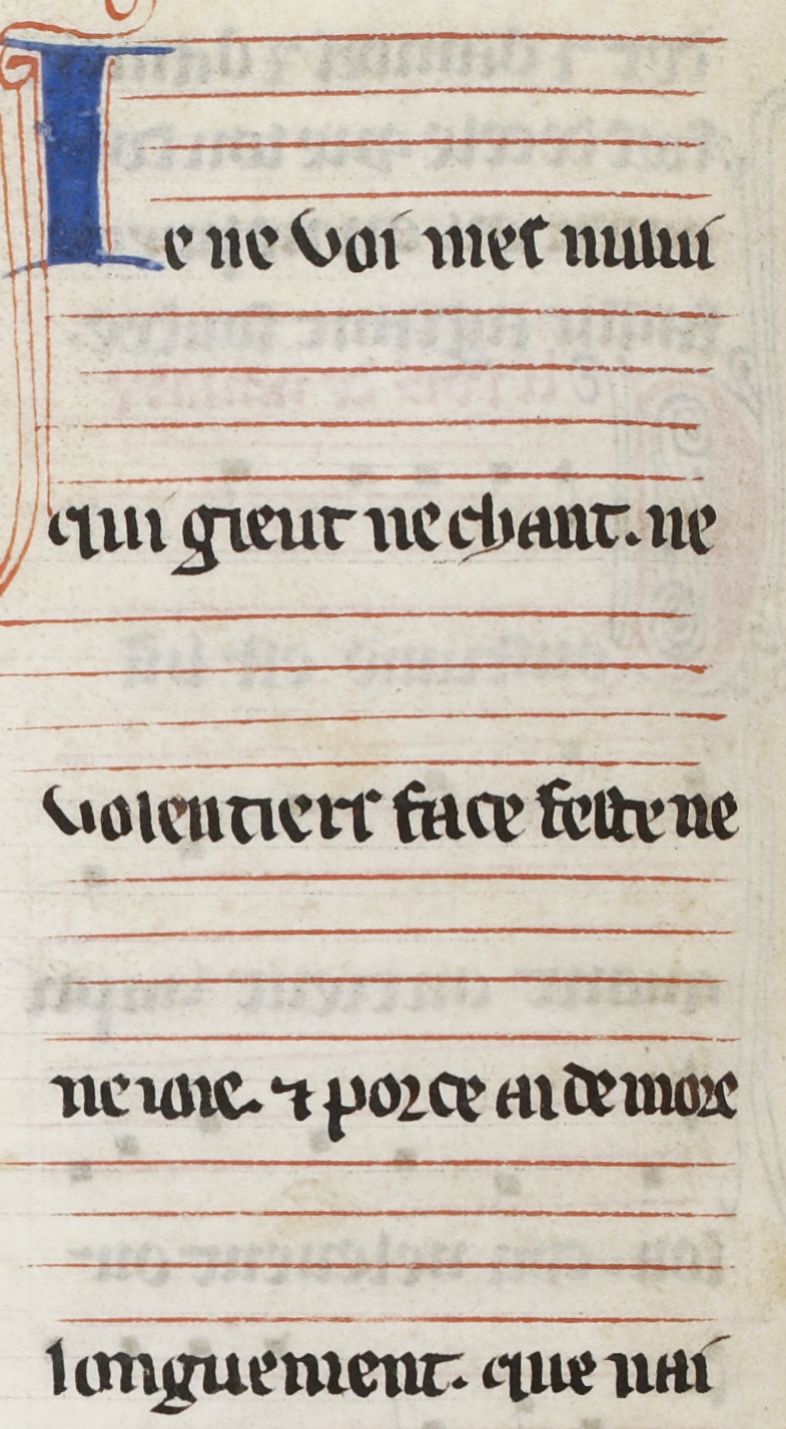 Ie ne voi mes nului
qui gieut ne chant. ne
volentiers face feste ne
ne ioie. ⁊ por ce ai demore
longuement. que nai